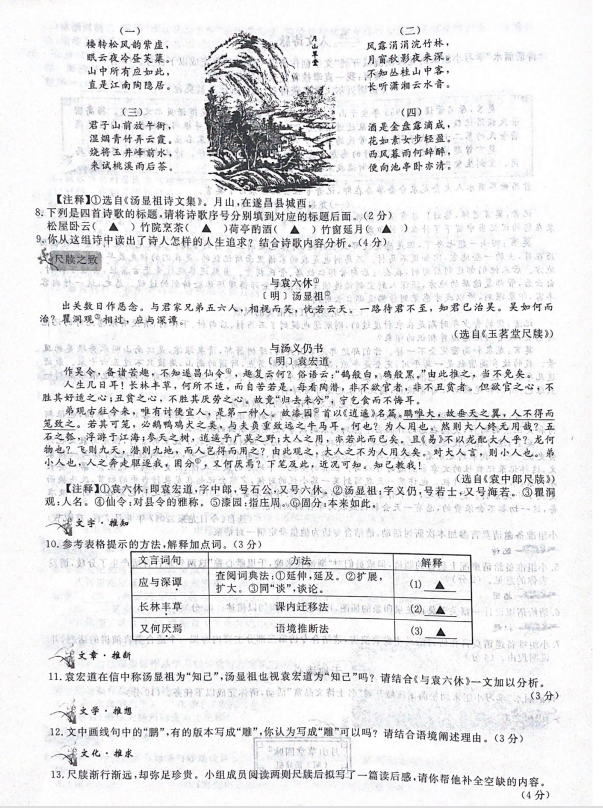 (一)
楼转松风韵紫虚,
眠云夜冷昼芙蕖。
山中所有应如此,
直是江南陶隐居。
月山草堂
(二)
风露涓涓浣竹林,
月窗秋影夜来深。
不知丛桂山中客,
长听潇湘云水音。
(三)
君子山前放午衙,
湿烟青竹弄云霞。
烧将玉井峰前水,
来试桃溪雨后茶。
(四)
酒是金盘露滴成,
花如素女步轻盈。
西风暮雨何辞醉,
便向池亭卧亦清。
【注释】①选自《汤显祖诗文集》。月山,在遂昌县城西。
8.下列是四首诗歌的标题,请将诗歌序号分别填到对应的标题后面。(2分)
松屋卧云( ▲ )竹院烹茶( ▲ )荷亭酌酒( ▲ )竹窗延月( ▲ )
9.你从这组诗中读出了诗人怎样的人生追求?结合诗歌内容分析。(4分)
尺牍之致
与袁六休①
〔明〕汤显祖②
出关数日作恶念。与君家兄弟五六人,相视而笑,恍若云天。一路待君不至,知君已治吴。吴如何而
治?瞿洞观③相过,应与深谭。
(选自《玉茗堂尺牍》)
与汤义仍书
〔明〕袁宏道
作吴令,备诸苦趣,不知遂昌仙令④,趣复云何?俗语云:“鹄般白,鸦般黑。”由此推之,当不免矣。
人生几日耳!长林丰草,何所不适,而自苦若是。每看陶潜,非不欲官者,非不丑贫者。但欲官之心,不
胜其好适之心;丑贫之心,不胜其厌劳之心。故竟“归去来兮”,宁乞食而不悔耳。
弟观古往今来,唯有讨便宜人,是第一种人。故漆园⑤首以《逍遥》名篇。鹏唯大,故垂天之翼,人不得而
笼致之。若其可笼,必鹅鸭鸡犬之类,与夫负重致远之牛马耳。何也?为人用也。然则大人终无用哉?五
石之瓠,浮游于江海;参天之树,逍遥乎广莫之野;大人之用,亦若此而已矣。且《易》不以龙配大人乎?龙何
物也?飞则九天,潜则九地,而人岂得而用之?由此观之,大人之不为人用久矣。对大人言,则小人也。弟
小人也,人之奔走驱逐我,固分⑥,又何厌焉?下笔及此,近况可知。知己教我!
(选自《袁中郎尺牍》)
【注释】①袁六休:即袁宏道,字中郎,号石公,又号六休。②汤显祖:字义仍,号若士,又号海若。③瞿洞
观:人名。④仙令:对县令的雅称。⑤漆园:指庄周。⑥固分:本来如此。
文字·推知
10.参考表格提示的方法,解释加点词。(3分)
文言词句 方法 解释
应与深谭 查阅词典法:①延伸,延及。②扩展,扩大。③同“谈”,谈论。 (1) ▲
长林丰草 课内迁移法 (2) ▲
又何厌焉 语境推断法 (3) ▲
文章·推断
11.袁宏道在信中称汤显祖为“知己”,汤显祖也视袁宏道为“知己”吗?请结合《与袁六休》一文加以分析。
(3分)
文学·推想
12.文中画线句中的“鹏”,有的版本写成“雕”,你认为写成“雕”可以吗?请结合语境阐述理由。(3分)
文化·推求
13.尺牍渐行渐远,却弥足珍贵。小组成员阅读两则尺牍后拟写了一篇读后感,请你帮他补全空缺的内容。
(4分)